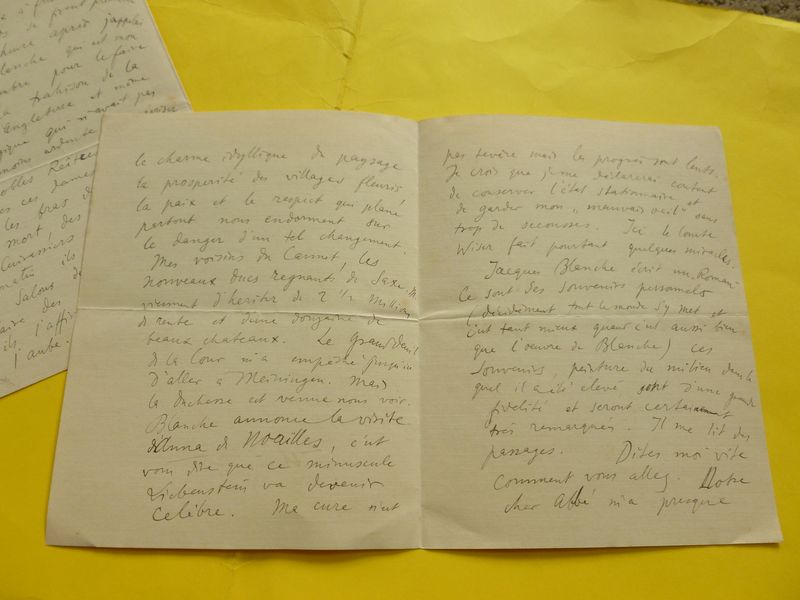 le charme idyllique du paysage
la prospérité des villages fleuris
la paix et le respect qui plane
partout nous endorment sur
le danger d'un tel changement
Mes voisins du Cannet, les
nouveaux ducs regnants de Saxe-M.
viennent d'hériter de 2 1/2 millions
de rente et d'une douzaine de
beaux chateaux. Le grand deuil
de la Cour m'a empêché jusqu'ici
D'aller à Meiningen. Mais
la duchesse est venue nous voir.
Blanche annonce la visite
d'Anna de Noailles, c'est
vous dire que ce minuscule
Liebenstein va devenir
celèbre. Ma cure n'est
pas sevère mais les progrès sont lents.
Je crois que je me déclarerai content
de conserver l'état stationnaire et
de garder mon "mauvais oeil" sans
trop de secousses. Ici le comte
Wiser fait pourtant quelques miracles.
Jacques Blanche écrit un Roman
Ce sont des souvenirs personnels
(décidément tout le monde s'y met et
c'est tant mieux quand c'est aussi bien
que l'oeuvre de Blanche) ces
souvenirs, peinture du milieu dans le
quel il a été elevé sont d'une grande
fidelité et seront certainement
très remarqués. Il me lit des
passages. Dites moi vite
comment vous allez. Notre
cher Abbé m'a presque
heure après j'appelai
Blanche qui est mon
pour le faire
trahison de la
Angleterre et même
qui n'avait pas
moins
nobles
ces dames
les bras
mort, des
Cuirassiers
ils
Salons de
des
ils
l'aube.